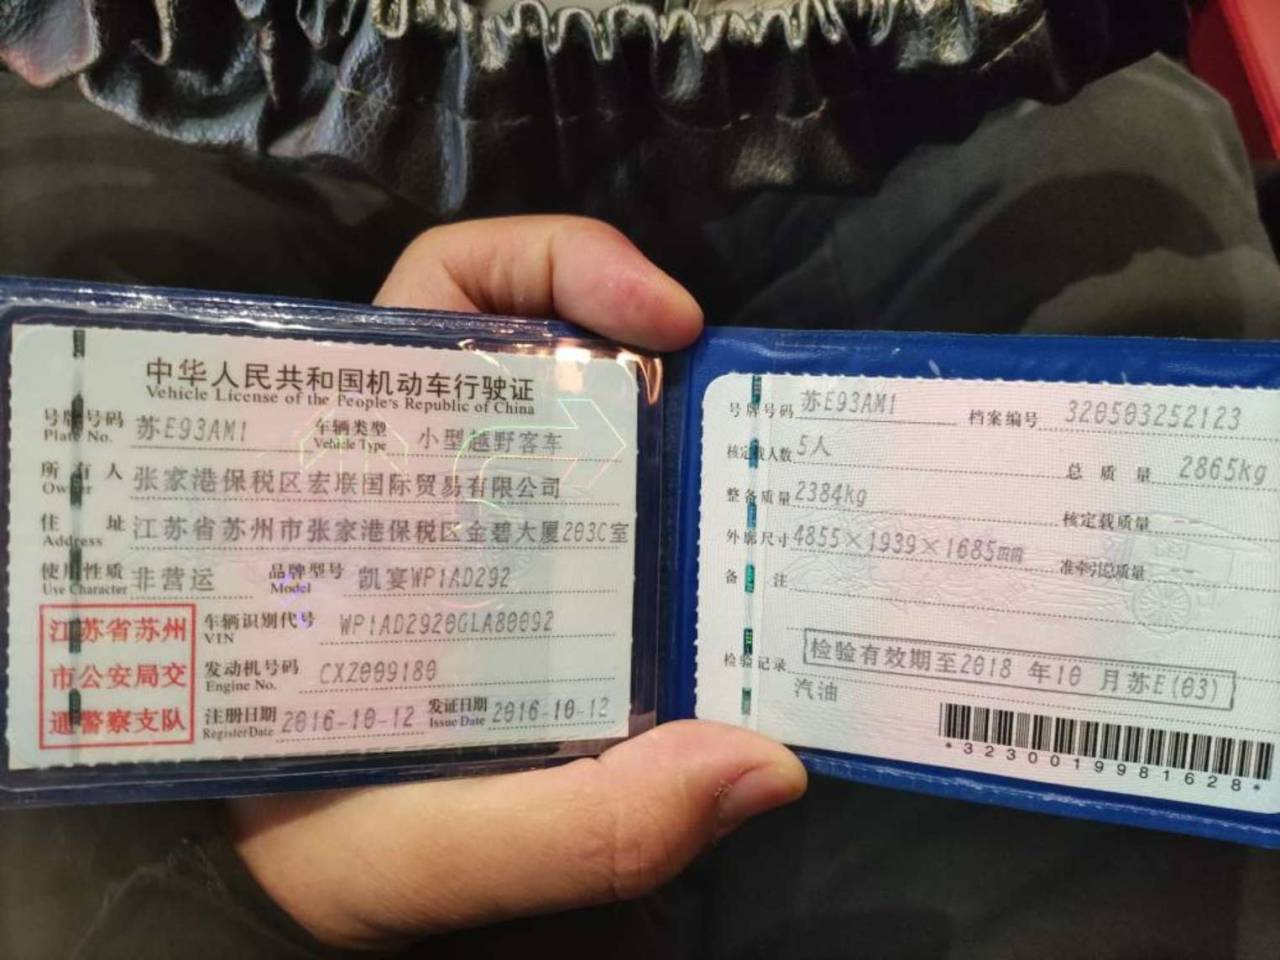 中华人民共和国机动车行驶证
Vehicle License of the People's Republic of China
号牌号码 苏E93AM1 车辆类型 小型越野客车
Plate No. Vehicle Type
所有人 张家港保税区宏联国际贸易有限公司
Owner
住址 江苏省苏州市张家港保税区金碧大厦203C室
Address
使用性质 非营运 品牌型号 凯宴WP1AD292
Use Character Model
江苏省苏州
市公安局交
通警察支队
车辆识别代号 WP1AD2920GLA80092
VIN
发动机号码 CXZ009180
Engine No.
注册日期 2016-10-12 发证日期 2016-10-12
Register Date Issue Date
号牌号码 苏E93AM1 档案编号 320503252123
核定载人数 5人 总质量 2865kg
整备质量 2384kg 核定载质量
外廓尺寸 4855×1939×1685mm 准牵引总质量
备注
检验记录 检验有效期至2018年10月苏E(03)
汽油
*3230019981628*